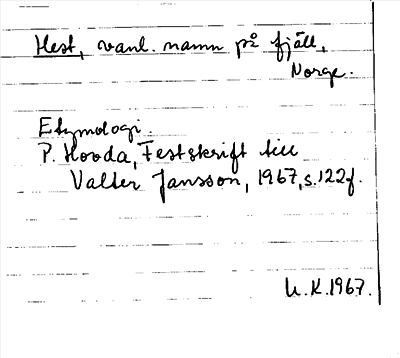 Hest, vanl. namn på fjäll,
Norge.
Etymologi.
P. Hovda, Festskrift till
Valter Jansson, 1967, s. 122f.
U.K. 1967.